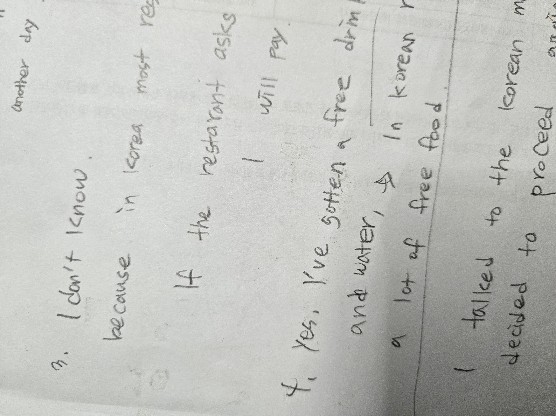 another day
3. I don't know.
because in korea most
If the restarant asks
I will pay.
4. Yes, I've gotten a free
and water, → In korean
a lot of free food.
I talked to the korean
decided to proceed